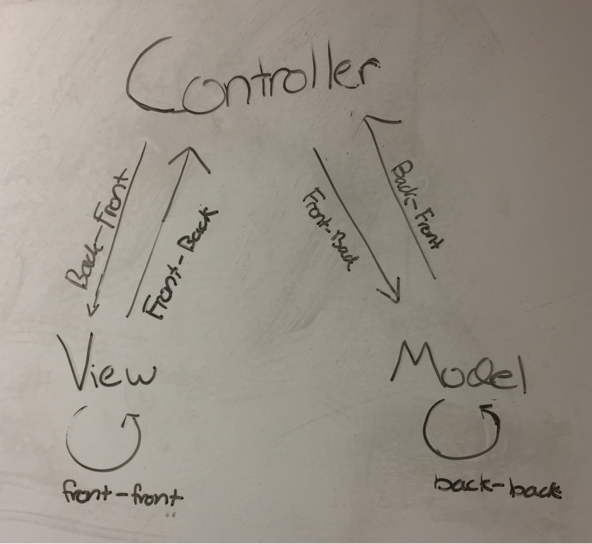 Controller
Back-Front
Front-Back
Front-Back
Back-Front
View
Model
front-front
back-back